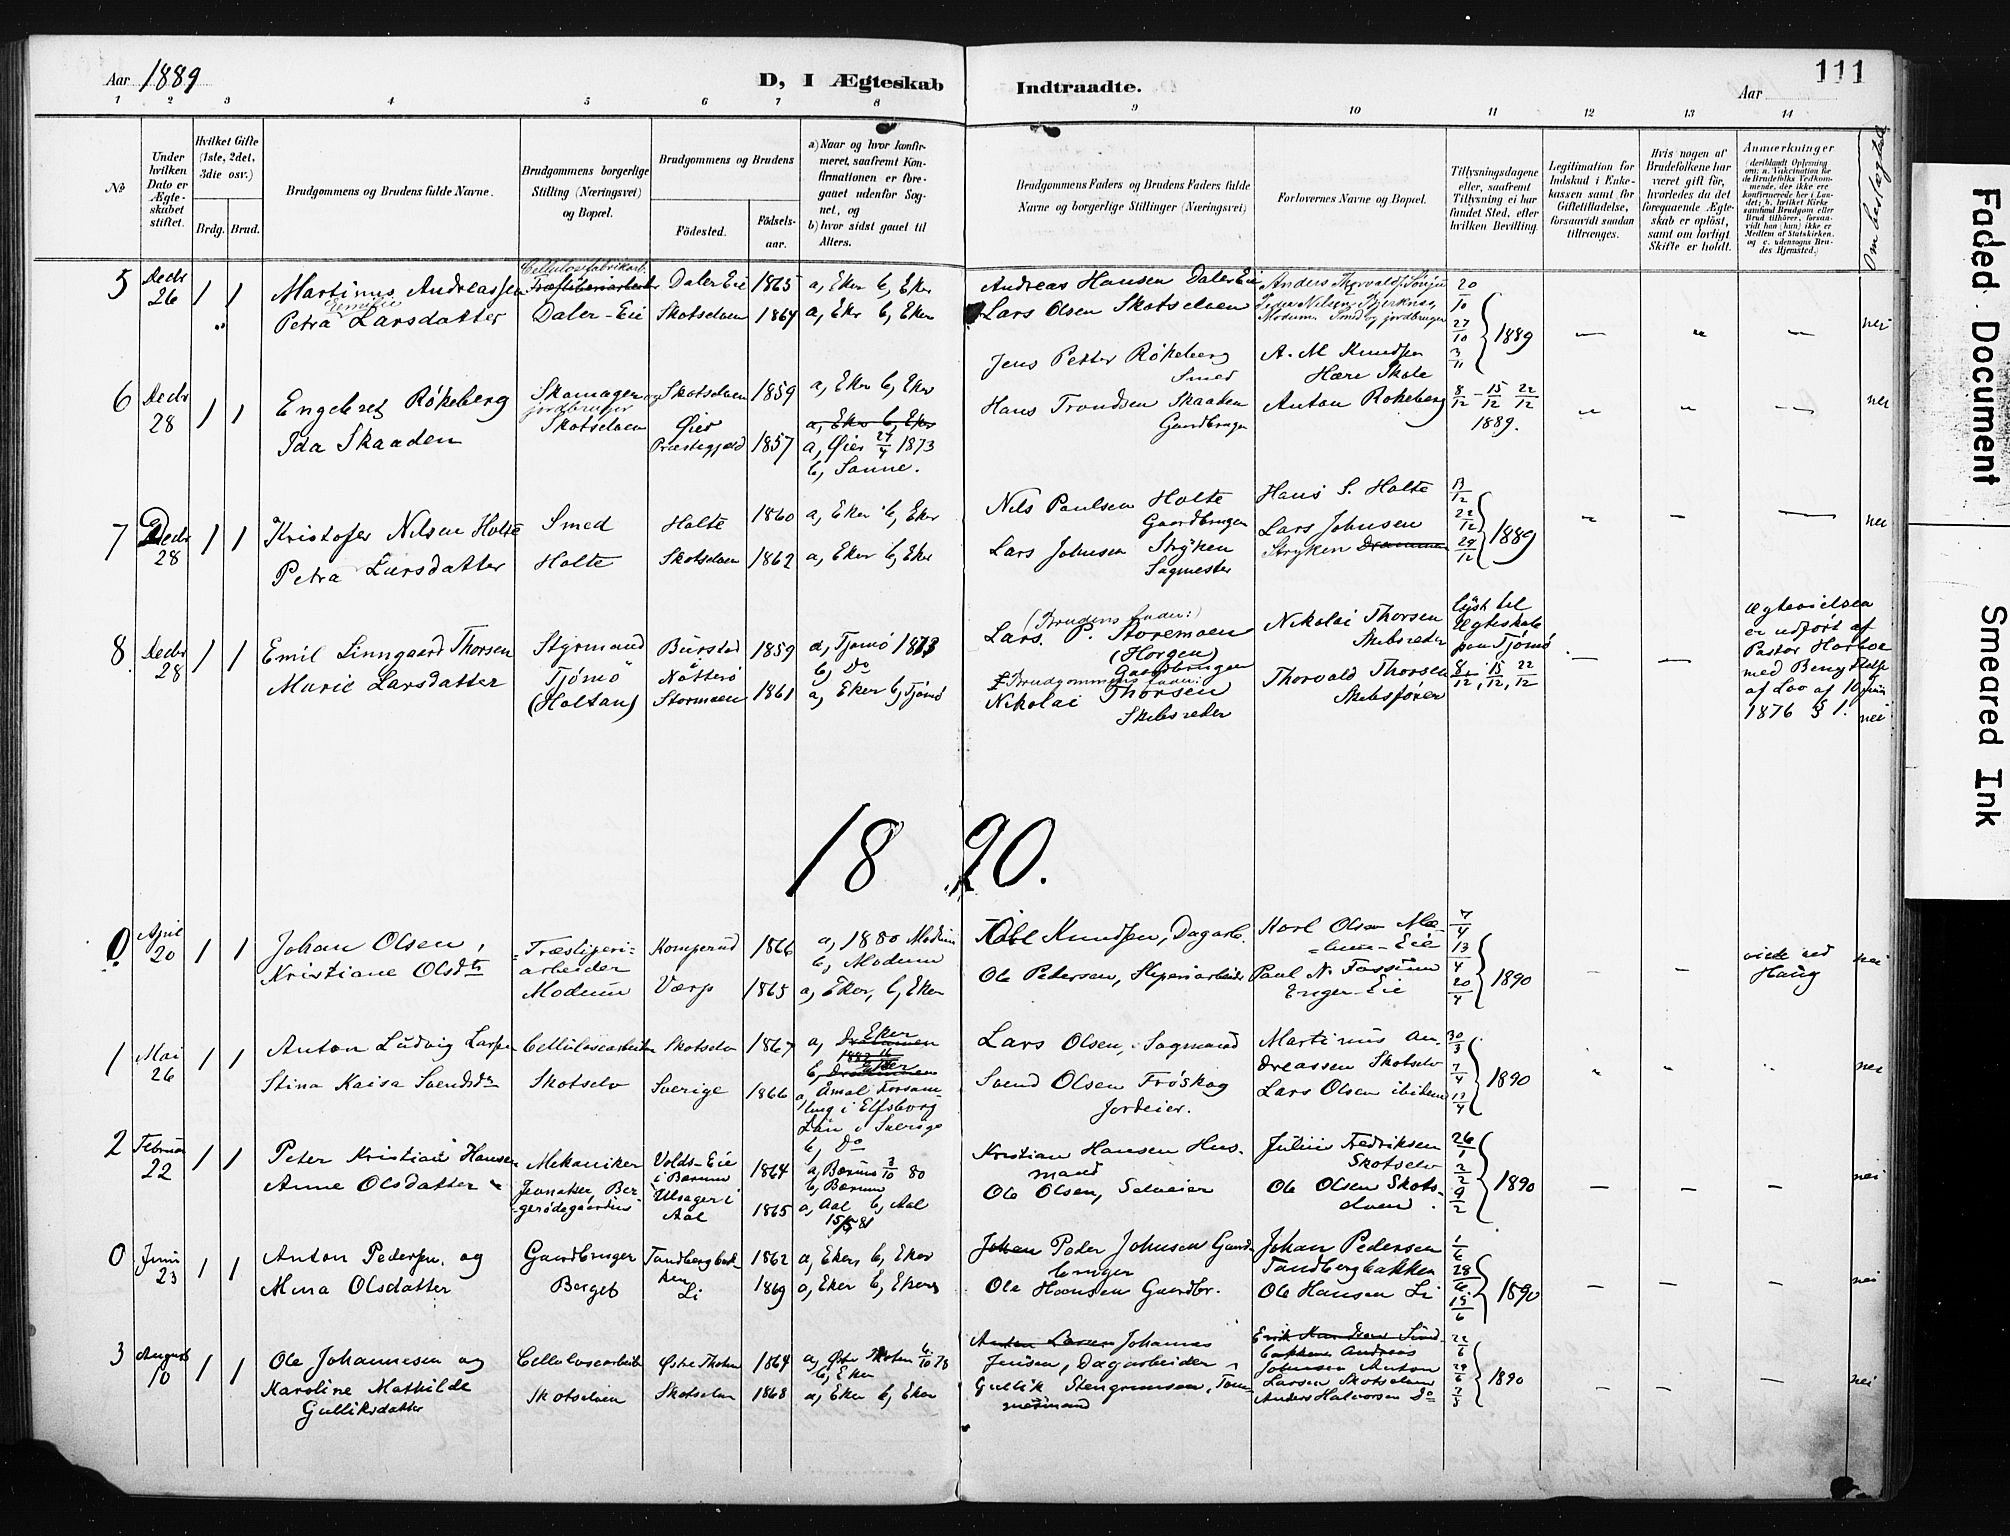 Aar 1889
D, I Ægteskab Indtraadte.
Aar
111
1 2 3 4 5 6 7 8 9 10 11 12 13 14
No
Under hvilken Dato er Ægteskabet stiftet.
Hvilket Gifte (1ste, 2det, 3die osv.)
Brdg. Brud.
Brudgommens og Brudens fulde Navne.
Brudgommens borgerlige Stilling (Næringsvei) og Bopæl.
Brudgommens og Brudens
Fødested.
Fødsels-aar.
a) Naar og hvor konfirmeret, saafremt Konfirmationen er foregaaet udenfor Sognet, og
b) hvor sidst gaaet til Alters.
Brudgommens Faders og Brudens Faders fulde Navne og borgerlige Stillinger (Næringsvei)
Forlovernes Navne og Bopæl.
Tillysningsdagene eller, saafremt Tillysning ei har fundet Sted, efter hvilken Bevilling.
Legitimation for Indskud i Enkekassen samt for Giftetilladelse, forsaavidt saadan tiltrænges.
Hvis nogen af Brudefolkene har været gift før, hvorledes da det foregaaende Ægteskab er opløst, samt om lovligt Skifte er holdt.
Anmærkninger
Om beslægtet
5 Decbr 26 1 1
Martinus Andreassen
Petra Emilie Larsdatter
Cellulosefabrikarb.
Daler-Eie
Daler Eie 1865 a, Eker b, Eker
Skotselven 1864 a, Eker b, Eker
Andreas Hansen Daler Eie
Lars Olsen Skotselven
20/10 27/10 3/11 1889
nei
6 Decbr 28 1 1
Engebret Røkeberg
Ida Skaaden
Skomager og
jordbruger
Skotselven
Skotselven 1859 a, Eker b, Eker
Øier Præstegjeld 1857
a, Eker b, Eker
a, Øier 27/4 1873
b, Sanne.
Jens Petter Røkeberg
Smed
Hans Trondsen Skaaden
Gaardbruger
A. M Knudsen
Hære Skole
Anton Røkeberg
8/12 - 15/12 22/12
1889.
nei
7 Decbr 28 1 1
Kristofer Nilsen Holte
Petra Larsdatter
Smed
Holte
Holte 1860 a, Eker b, Eker
Skotselven 1862 a, Eker b, Eker
Nils Paulsen Holte
Gaardbruger
Lars Johnsen Stryken
Sagmester
Hans S. Holte
Lars Johnsen
Stryken Drammen
22/12 29/12 1889
nei
8 Decbr 28 1 1
Emil Linngaard Thorsen
Marie Larsdatter
Styrmand
Tjømö
(Holtan)
Burstad Nötterö 1859
Stormoen 1861
a, Tjømö 1873
b, Do
a, Eker b, Tjømö
(Brudens fader:)
Lars P. Storemoen
(Horgen)
Gaardbruger
Brudgommens fader:
Nikolai Thorsen
Skibsreder
Nikolai Thorsen
Skibsreder
Thorvald Thorsen
Skibsfører
lyst til
Ægteskab
paa Tjømö
8/12, 15/12, 22/12
Ægtevielsen
er udført af
Pastor
med
af Lov af 10 juni
1876 § 1.
nei
1890.
0 April 20 1 1
Johan Olsen,
Kristiane Olsdtr
Træsliperi-
arbeider
Modum
Komperud 1866 a, 1880 Modum
b, Modum
Værp 1865 a, Eker, b, Eker
Knudsen, Dagarb.
Ole Pedersen, Sliperiarbeider
Karl Olsen Mæ-
lum-Eie
Paul N. Fossum
Enger-Eie
7/4 13/4 20/4 1890
viede ved
Haug
nei
1 Mai 26 1 1
Anton Ludvig Larsen
Stina Kaisa Svendsdtr
Cellulosearbeider
Skotselv
Skotselv 1867
Sverige 1866
a, Drammen Eker
b, Drammen Eker
a, Amal Forsam-
ling i Elfsborg
Län i Sverige
b, Do
Lars Olsen, Sagmand
Svend Olsen Fröskog
Jordeier.
Martinus An-
dreassen Skotselv
Lars Olsen ibidem
30/3 7/4 13/4 1890
nei
2 Februar 22 1 1
Peter Kristian Hansen
Anne Olsdatter
Mekaniker
Jevnaker, Ber-
gerødegaardens
Volds-Eie
i Bærum 1864
Ulsager i
Aal 1865
a, Bærum 3/10 80
b, Bærum
a, Aal b, Aal
15/5 81
Kristian Hansen Hus-
mand
Ole Olsen, Selveier
Julius Fredriksen
Skotselv
Ole Olsen Skots-
elven.
26/1 2/2 9/2 1890
nei
0 Juni 23 1 1
Anton Pedersen og
Mina Olsdatter
Gaardbruger
Berget
Tandbergbak-
ken 1862
Li 1869
a, Eker, b, Eker
a, Eker b, Eker
Johan Peder Johnsen Gaard-
bruger
Ole Hansen Gaardbr.
Johan Pedersen
Tandbergbakken
Ole Hansen Li
1/6 28/6 15/6 1890
nei
3 August 10 1 1
Ole Johannesen og
Karoline Mathilde
Gulliksdatter
Cellulosearbeider
Skotselven
Østre Thoten 1864
Skotselven 1868
a, Østre Thoten 6/10 78
b, Eker
a, Eker b, Eker
Anton Larsen Johannes
Jensen, Dagarbeider
Gullik Stengrimsen, Tøm-
mermand
Johnsen Anton
Larsen Skotselven
Anders Halvorsen Do
22/6 29/6 1890
nei
Faded Document
Smeared Ink